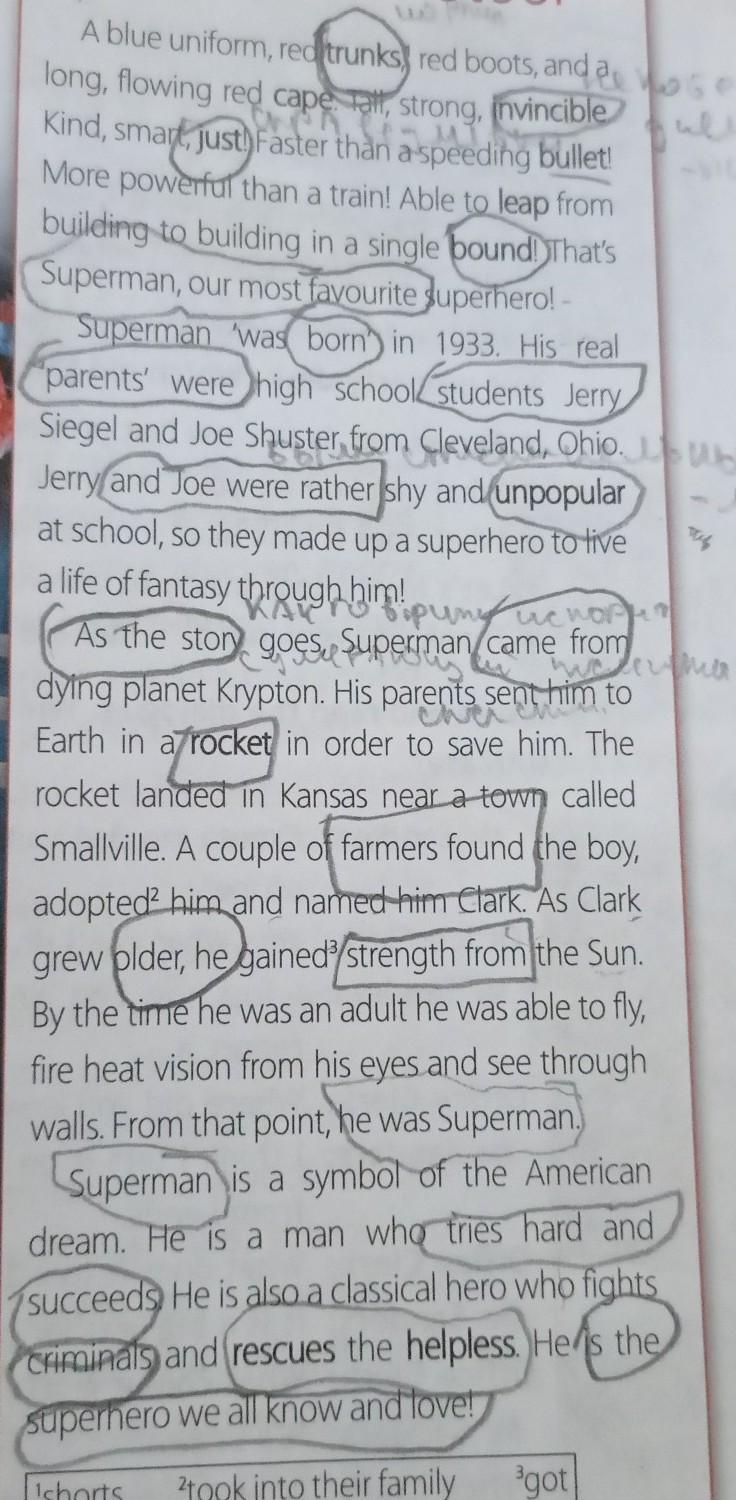 A blue uniform, red trunks, red boots, and a
long, flowing red cape. Tall, strong, invincible.
Kind, smart, just! Faster than a speeding bullet!
More powerful than a train! Able to leap from
building to building in a single bound! That's
Superman, our most favourite superhero!
Superman 'was born' in 1933. His real
'parents' were high school students Jerry
Siegel and Joe Shuster from Cleveland, Ohio.
Jerry and Joe were rather shy and unpopular
at school, so they made up a superhero to live
a life of fantasy through him!
As the story goes, Superman came from
dying planet Krypton. His parents sent him to
Earth in a rocket in order to save him. The
rocket landed in Kansas near a town called
Smallville. A couple of farmers found the boy,
adopted² him and named him Clark. As Clark
grew older, he gained³ strength from the Sun.
By the time he was an adult he was able to fly,
fire heat vision from his eyes and see through
walls. From that point, he was Superman.
Superman is a symbol of the American
dream. He is a man who tries hard and
succeeds. He is also a classical hero who fights
criminals and rescues the helpless. He is the
superhero we all know and love!
¹shorts ²took into their family ³got